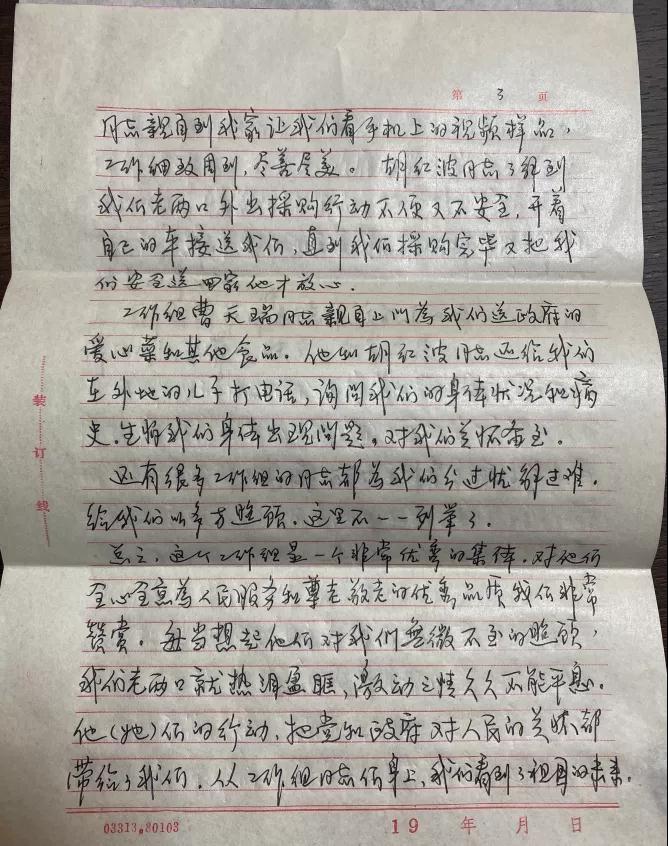 第 3 页
同志亲自到我家让我们看手机上的视频样品，
工作细致周到，尽善尽美。胡红波同志了解到
我们老两口外出採购行动不便又不安全，开着
自己的车接送我们，直到我们採购完毕又把我
们安全送回家他才放心。
工作组曹天瑞同志親自上门為我们送政府的
爱心菜和其他食品。他和胡红波同志还给我们
在外地的儿子打电话，询问我们的身体状况和病
史。生怕我们身体出现问题。对我们关怀备至。
还有很多工作组的同志都為我们分过忧解过难。
给我们以多方照顾。这里不一一列举了。
总之，这个工作组是一个非常优秀的集体。对他们
全心全意為人民服务和尊老敬老的优秀品质我们非常
赞赏。每当想起他们对我们無微不至的照顾，
我们老两口就热泪盈眶，激动之情久久不能平息。
他（她）们的行动，把党和政府对人民的关怀都
带给了我们。从工作组同志们身上，我们看到了祖国的未来。
装
订
线
03313.80103
19 年 月 日